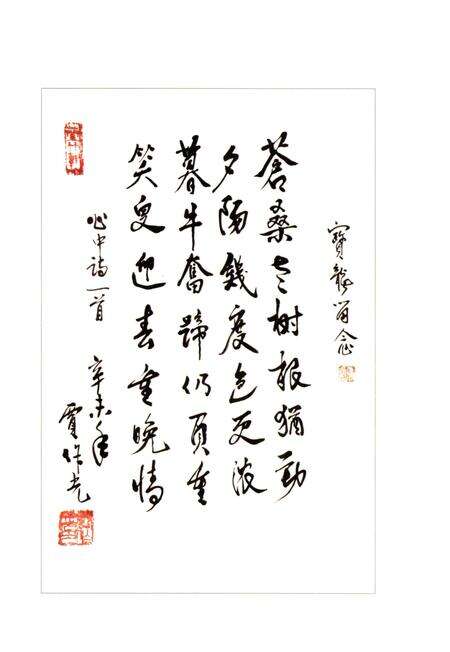 寳龍留念
蒼桑老樹根猶勁
夕陽幾度色更濃
暮牛奮蹄仍負重
笑叟迎春重晚情
心中詩一首
辛未年
賈作光